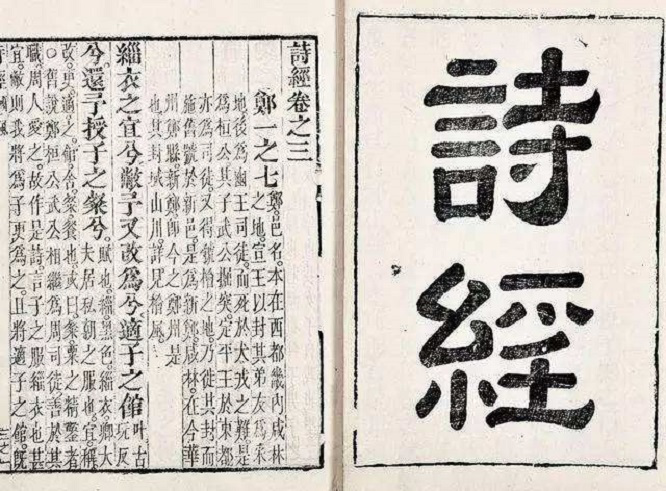 詩經
詩經卷之三
鄭一之七
鄭。邑名。本在西都畿內咸林
之地。宣王以封其弟友為采
地。後為幽王司徒。而死於犬戎之難。是
為桓公。其子武公掘突。定平王於東都。
亦為司徒。又得虢檜之地。乃徙其封。而
施舊號於新邑。是為新鄭。咸林在今華
州鄭縣。新鄭即今之鄭州是
也。其封域山川。詳見檜風。
緇衣之宜兮。敝予又改為兮。適子之館
叶古
玩反
兮。還予授子之粲兮。
賦也。緇黑色。緇衣。卿大
夫居私朝之服也。宜。稱。
改。更。適。之。館。舍。粲。餐也。或曰。粲。粟之精鑿者。
○舊說鄭桓公武公相繼為周司徒。善於其
職。周人愛之。故作是詩。言子之服緇衣也甚
宜。敝則我將為子更為之。且將適子之館。既